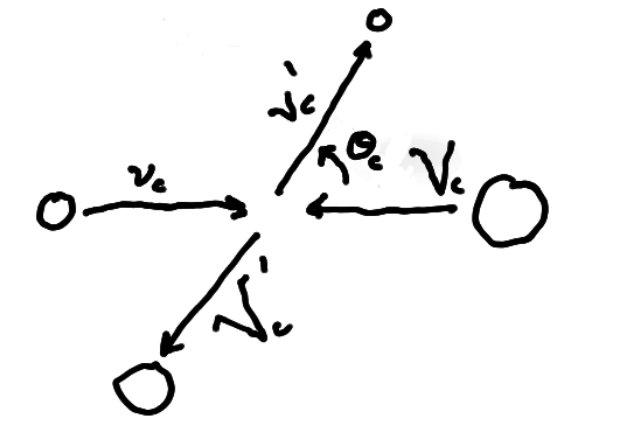 v'c
θc
Vc
vc
V'c